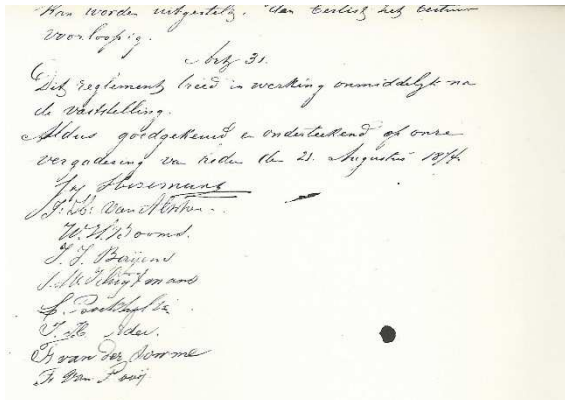 kan worden uitgesteld, dan beslist het bestuur
voorloopig.
Art 31.
Dit reglement treed in werking onmiddelyk na
de vaststelling.
Aldus goedgekeurd en onderteekend op onze
vergadering van heden den 21. Augustus 1874.
van
W. H. Booms.
J. J. Beijens
J. H. Ader
Fr van der Somme
Fr van Rooij